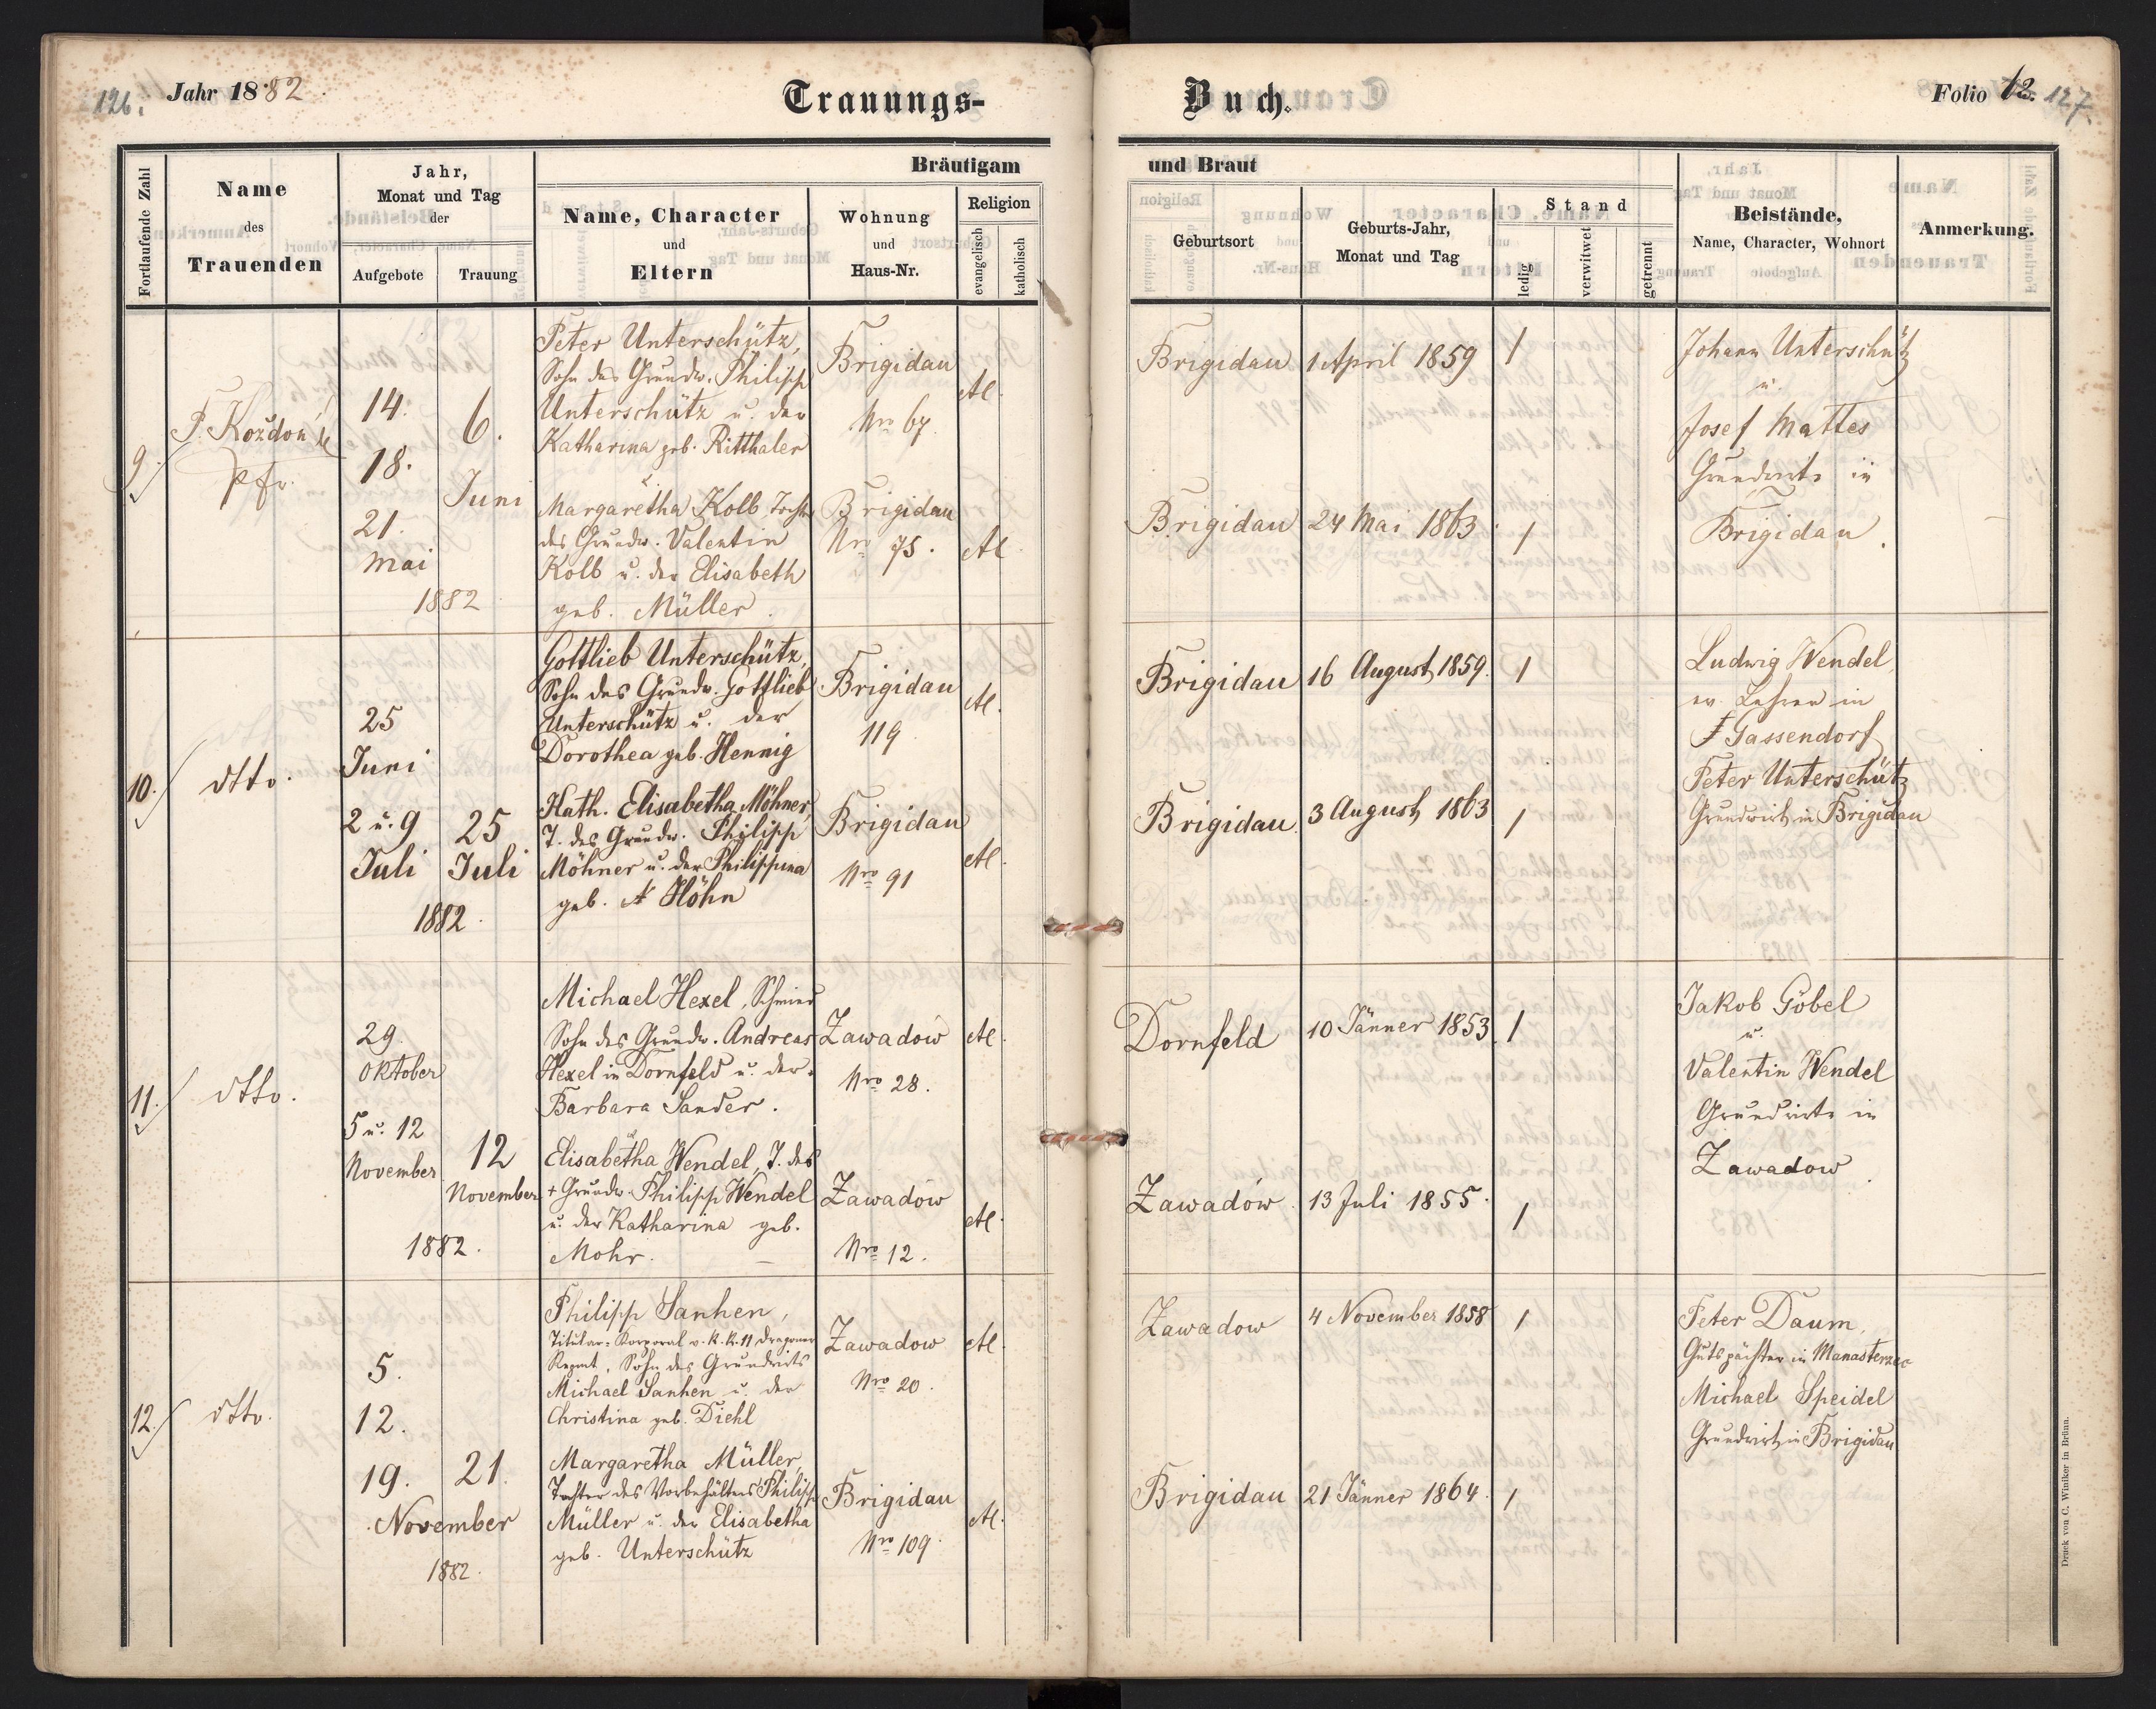 126. Jahr 1882. Trauungs-
Buch. Folio 12. 127.
Fortlaufende Zahl
Name
des
Trauenden
Jahr,
Monat und Tag
der
Aufgebote
Trauung
Bräutigam
Name, Character
und
Eltern
Wohnung
und
Haus-Nr.
Religion
evangelisch
katholisch
und Braut
Geburtsort
Geburts-Jahr,
Monat und Tag
Stand
ledig
verwitwet
getrennt
Beistände,
Name, Character, Wohnort
Anmerkung.
9.
Pfr.
14.
18.
21.
Mai
6.
Juni
1882
Peter Unterschütz,
Sohn des Grundw. Philipp
Unterschütz u. der
Katharina geb. Ritthaler
Brigidau
Nro 67
Brigidau 1 April 1859 1
Margaretha Kolb, Tocht.
des Grundw. Valentin
Kolb u. der Elisabeth
geb. Müller.
Brigidau
Nro 75.
Brigidau 24 Mai 1863. 1
Johann Unterschütz
u.
Josef Mattes
Grundwirte in
Brigidau.
10.
dtto.
25
Juni
2 u. 9
Juli
25
Juli
1882.
Gottlieb Unterschütz,
Sohn des Grundw. Gottlieb
Unterschütz u. der
Dorothea geb. Hennig
Brigidau
119
Brigidau 16 August 1859. 1
Kath. Elisabetha Möhner,
T. des Grundw. Philipp
Möhner u. der Philippina
geb. Höhn
Brigidau
Nro 91
Brigidau. 3 August 1863 1
Ludwig Wendel,
ev. Lehrer in
Gassendorf
Peter Unterschütz
Grundwirt in Brigidau
11.
dtto.
29.
Oktober
5 u. 12
November
12
November
1882.
Michael Hexel, Schmied
Sohn des Grundw. Andreas
Hexel in Dornfeld u. der
Barbara Sander.
Zawadów
Nro 28.
Dornfeld 10. Jänner 1853. 1
Elisabetha Wendel, T. des
+ Grundw. Philipp Wendel
u. der Katharina geb.
Mohr.
Zawadów
Nro 12.
Zawadów 13 Juli 1855. 1
Jakob Göbel
u.
Valentin Wendel
Grundwirte in
Zawadow
12.
dtto.
5.
12.
19.
21.
November
1882.
Philipp Sanhen,
Titular-Korporal v. k. k. 11 Dragoner
Regmt, Sohn des Grundwirts
Michael Sanhen u. der
Christina geb. Diehl
Zawadow
Nro 20.
Zawadow 4 November 1858 1
Margaretha Müller,
Tochter des Vorbehälters Philipp
Müller u. der Elisabetha
geb. Unterschütz
Brigidau
Nro 109.
Brigidau 21 Jänner 1864. 1
Peter Daum,
Gutspächter in Manasterzec
Michael Speidel
Grundwirt in Brigidau
Druck von C. Winiker in Brünn.